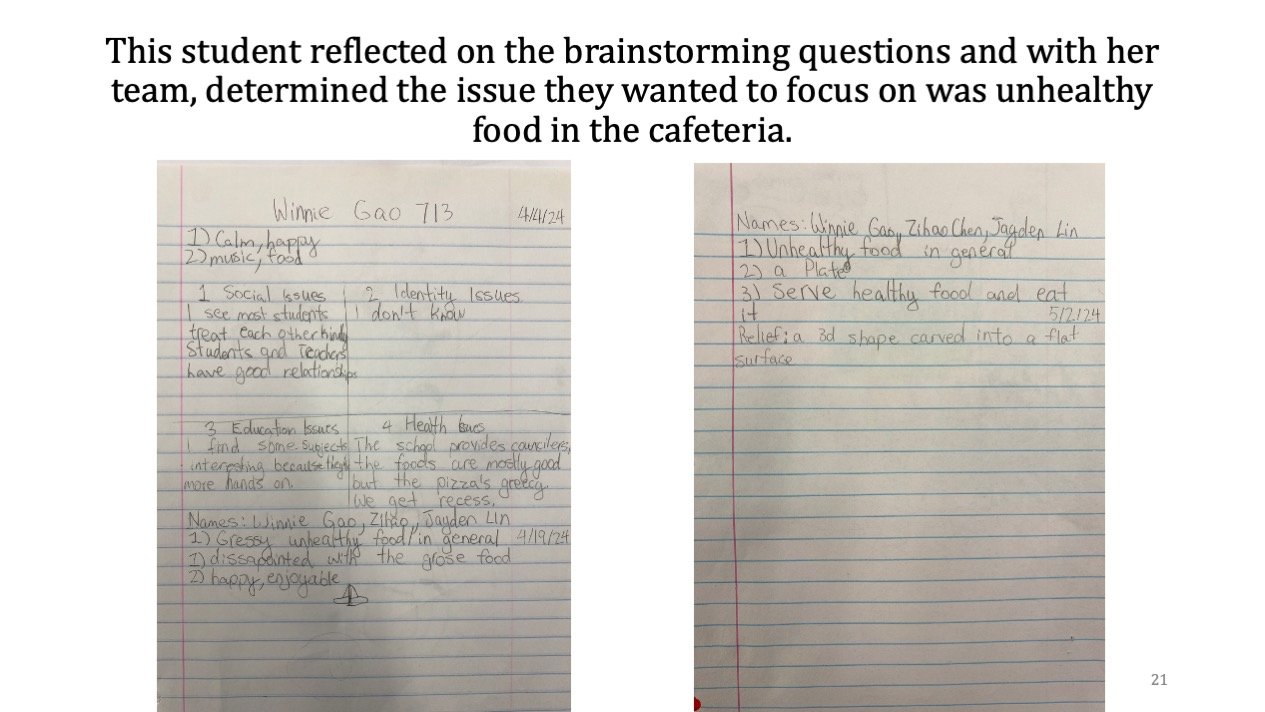 This student reflected on the brainstorming questions and with her
team, determined the issue they wanted to focus on was unhealthy
food in the cafeteria.
Winnie Gao 713 4/4/24
1) Calm, happy
2) music, food
1 Social Issues
I see most students
treat each other kindly
Students and Teachers
have good relationships
2 Identity Issues
I don't know
3 Education Issues
I find some subjects
interesting because they
more hands on.
4 Health Issues
The school provides councilers,
the foods are mostly good
but the pizza's greecy.
We get recess.
Names: Winnie Gao, Zihao, Jayden Lin
1) Gressy unhealthy food/in general 4/19/24
1) dissapointed with the grose food
2) happy, enjoyable
Names: Winnie Gao, Zihao Chen, Jayden Lin
1) Unhealthy food in general
2) a Plate
3) Serve healthy food and eat
it 5/2/24
Relief: a 3d shape carved into a flat
surface
21